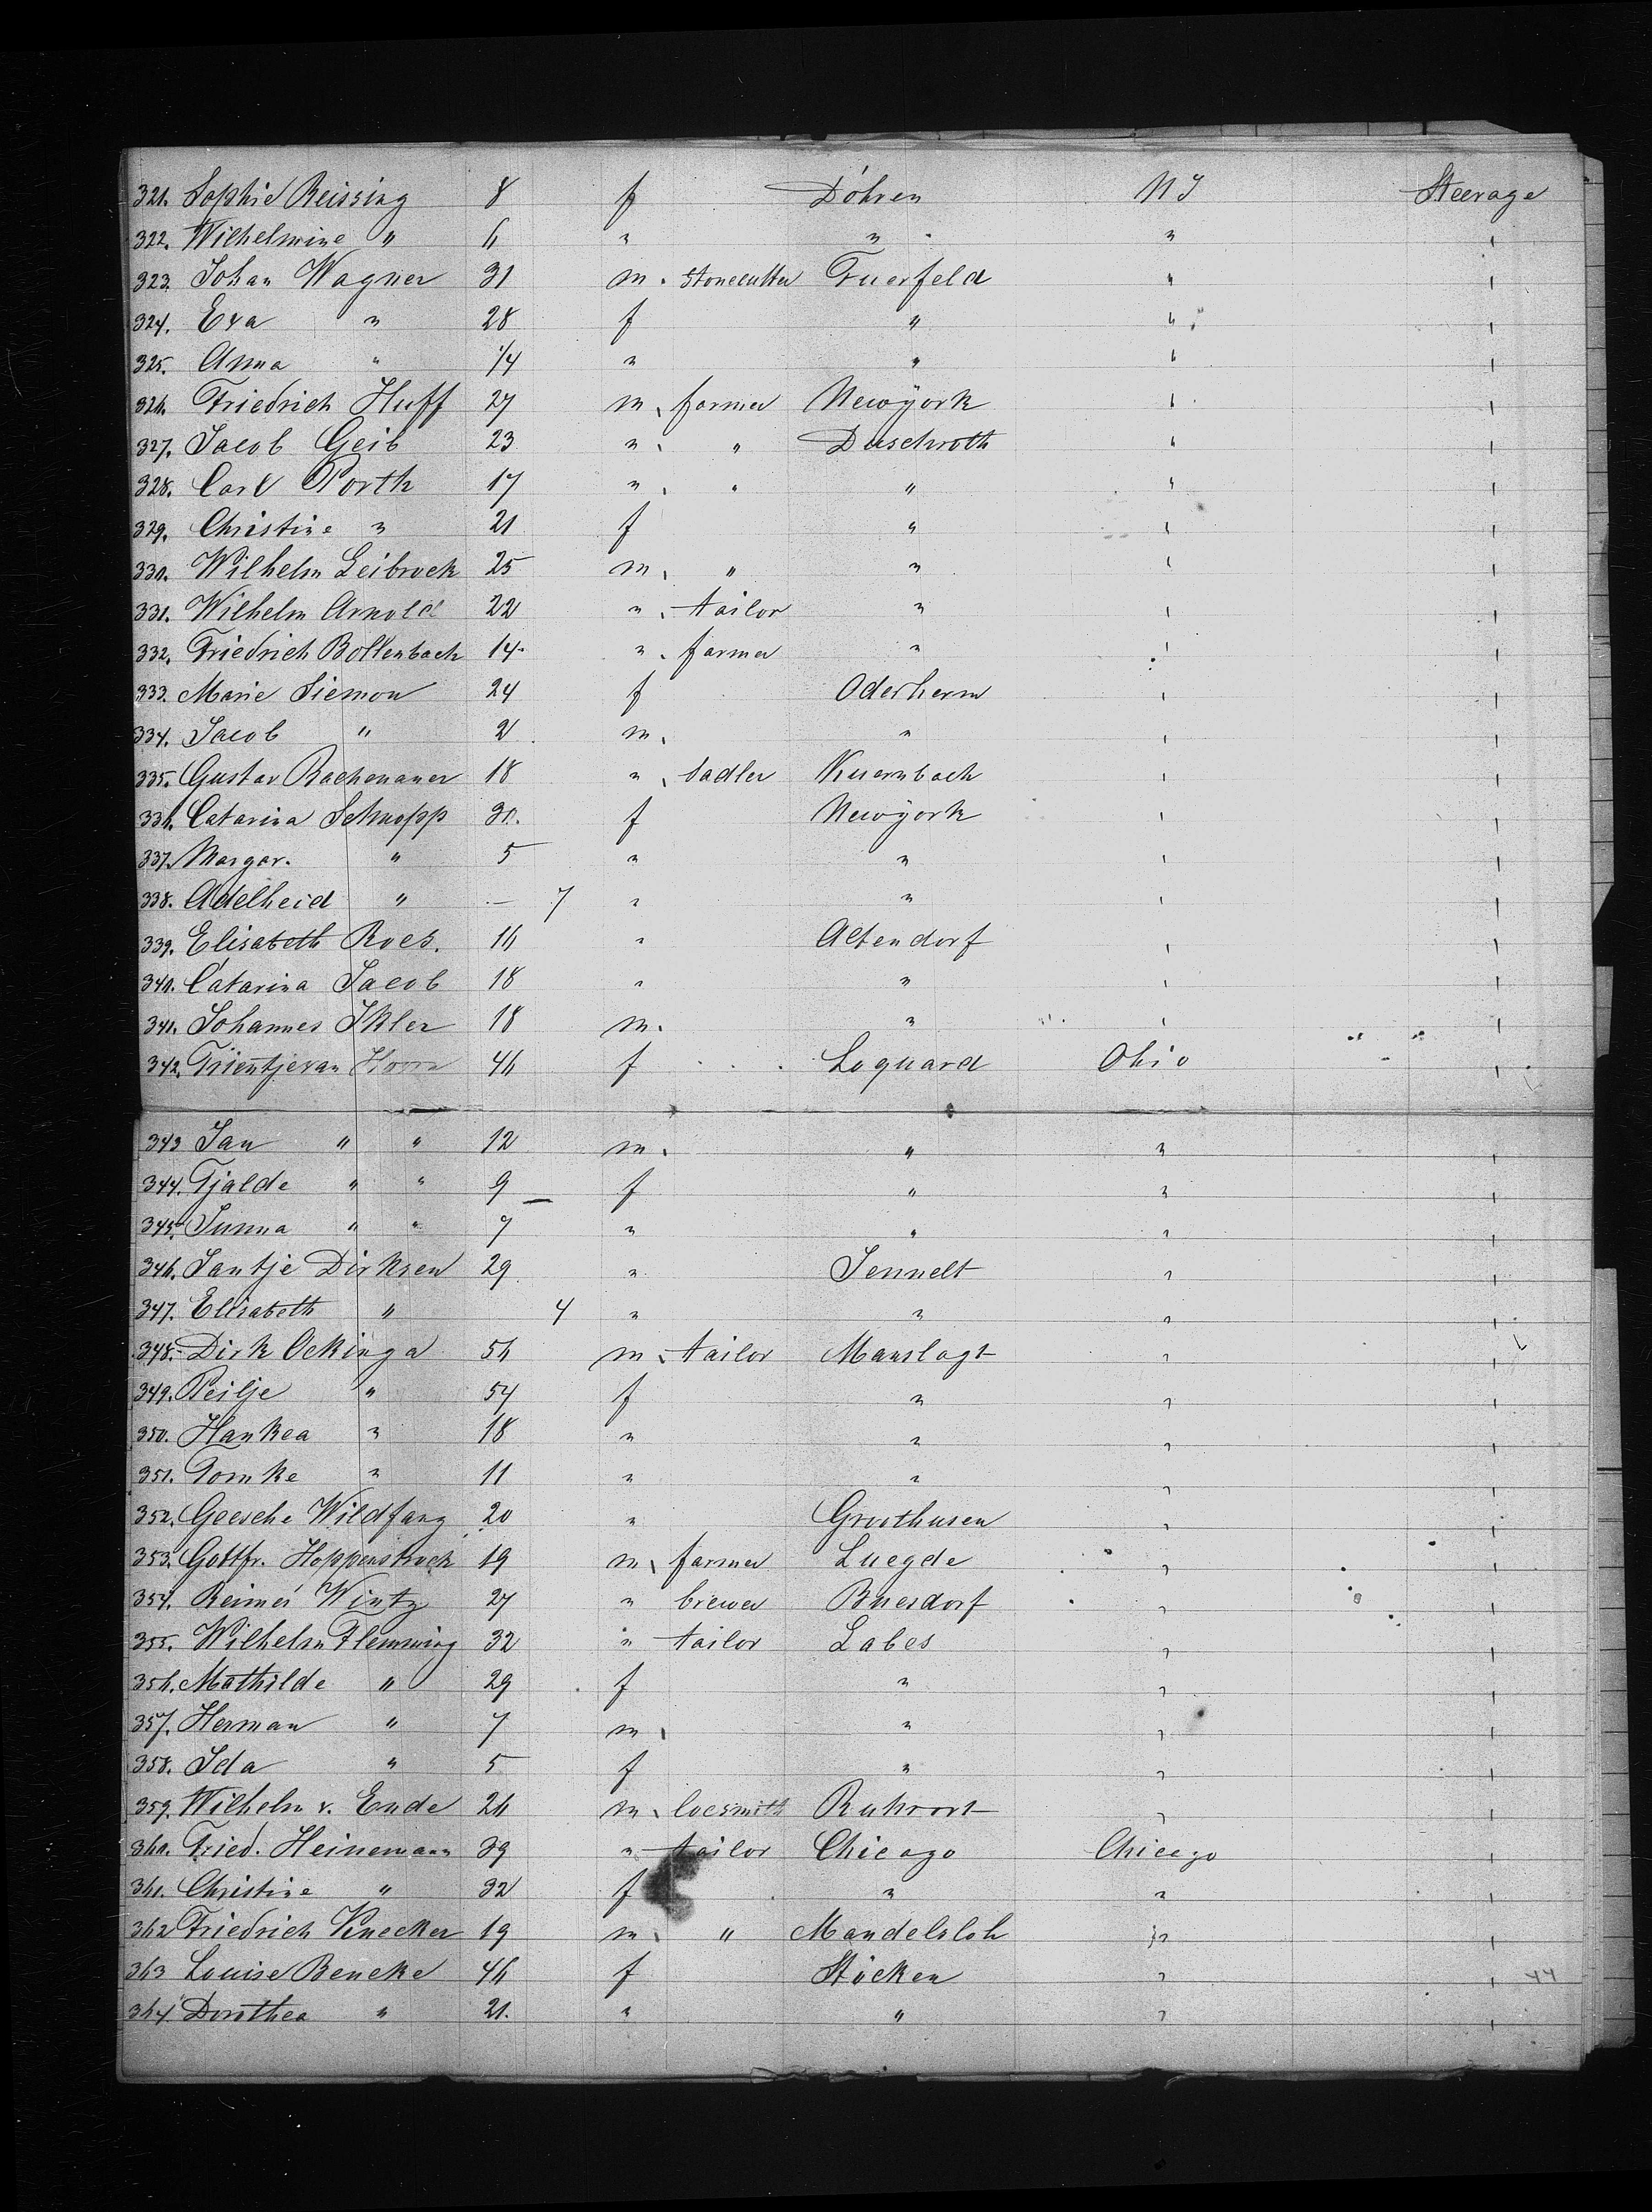 321. Sophie Reissing 8 f Döhren NY Steerage
322. Wilhelmine " 6 " " " "
323. Johan Wagner 31 m. stonecutter Fuerfeld " "
324. Eva " 28 f " " "
325. Anna " 1/4 " " " "
326. Friedrich Huff 27 m. farmer Newyork " "
327. Jacob Geib 23 " " Duschroth " "
328. Carl Porth 17 " " " " "
329. Christine " 21 f " " "
330. Wilhelm Leibrock 25 m. " " " "
331. Wilhelm Arnold 22 " tailor " " "
332. Friedrich Bollenbach 14 " farmer " " "
333. Marie Siemon 24 f Oderherm " "
334. Jacob " 2 m. " " "
335. Gustav Rachenauer 18 " sadler Kuernbach " "
336. Catarina Schnopp 30. f Newyork " "
337. Margar. " 5 " " " "
338. Adelheid " — 7 " " " "
339. Elisabeth Roes. 16 " Altendorf " "
340. Catarina Jacob 18 " " " "
341. Johannes Ikler 18 m. " " "
342. Trientje van Hoorn 46 f Loquard Ohio "
343 Jan " " 12 m. " " "
344. Tjalde " " 9 f " " "
345. Junna " " 7 " " " "
346. Jantje Dirksen 29 " Jennelt " "
347. Elisabeth " 4 " " " "
348. Dirk Ockinga 56 m. tailor Manslagt " "
349. Peilje " 54 f " " "
350. Hankea " 18 " " " "
351. Tomke " 11 " " " "
352. Geesche Wildfang 20 " Groothusen " "
353. Gottfr. Hoppenstock 19 m. farmer Luegde " "
354. Reimer Wintz 27 " brewer Buesdorf " "
355. Wilhelm Flemming 32 " tailor Labes " "
356. Mathilde " 29 f " " "
357. Herman " 7 m. " " "
358. Ida " 5 f " " "
359. Wilhelm v. Ende 26 m. locsmith Ruhrort " "
360. Fried. Heinemann 39 " tailor Chicago Chicago "
361. Christine " 32 f " " "
362 Friedrich Knecker 19 m. " Mandelsloh " "
363 Louise Beneke 46 f Stöcken " " 44
364. Dorothea " 21. " " " "